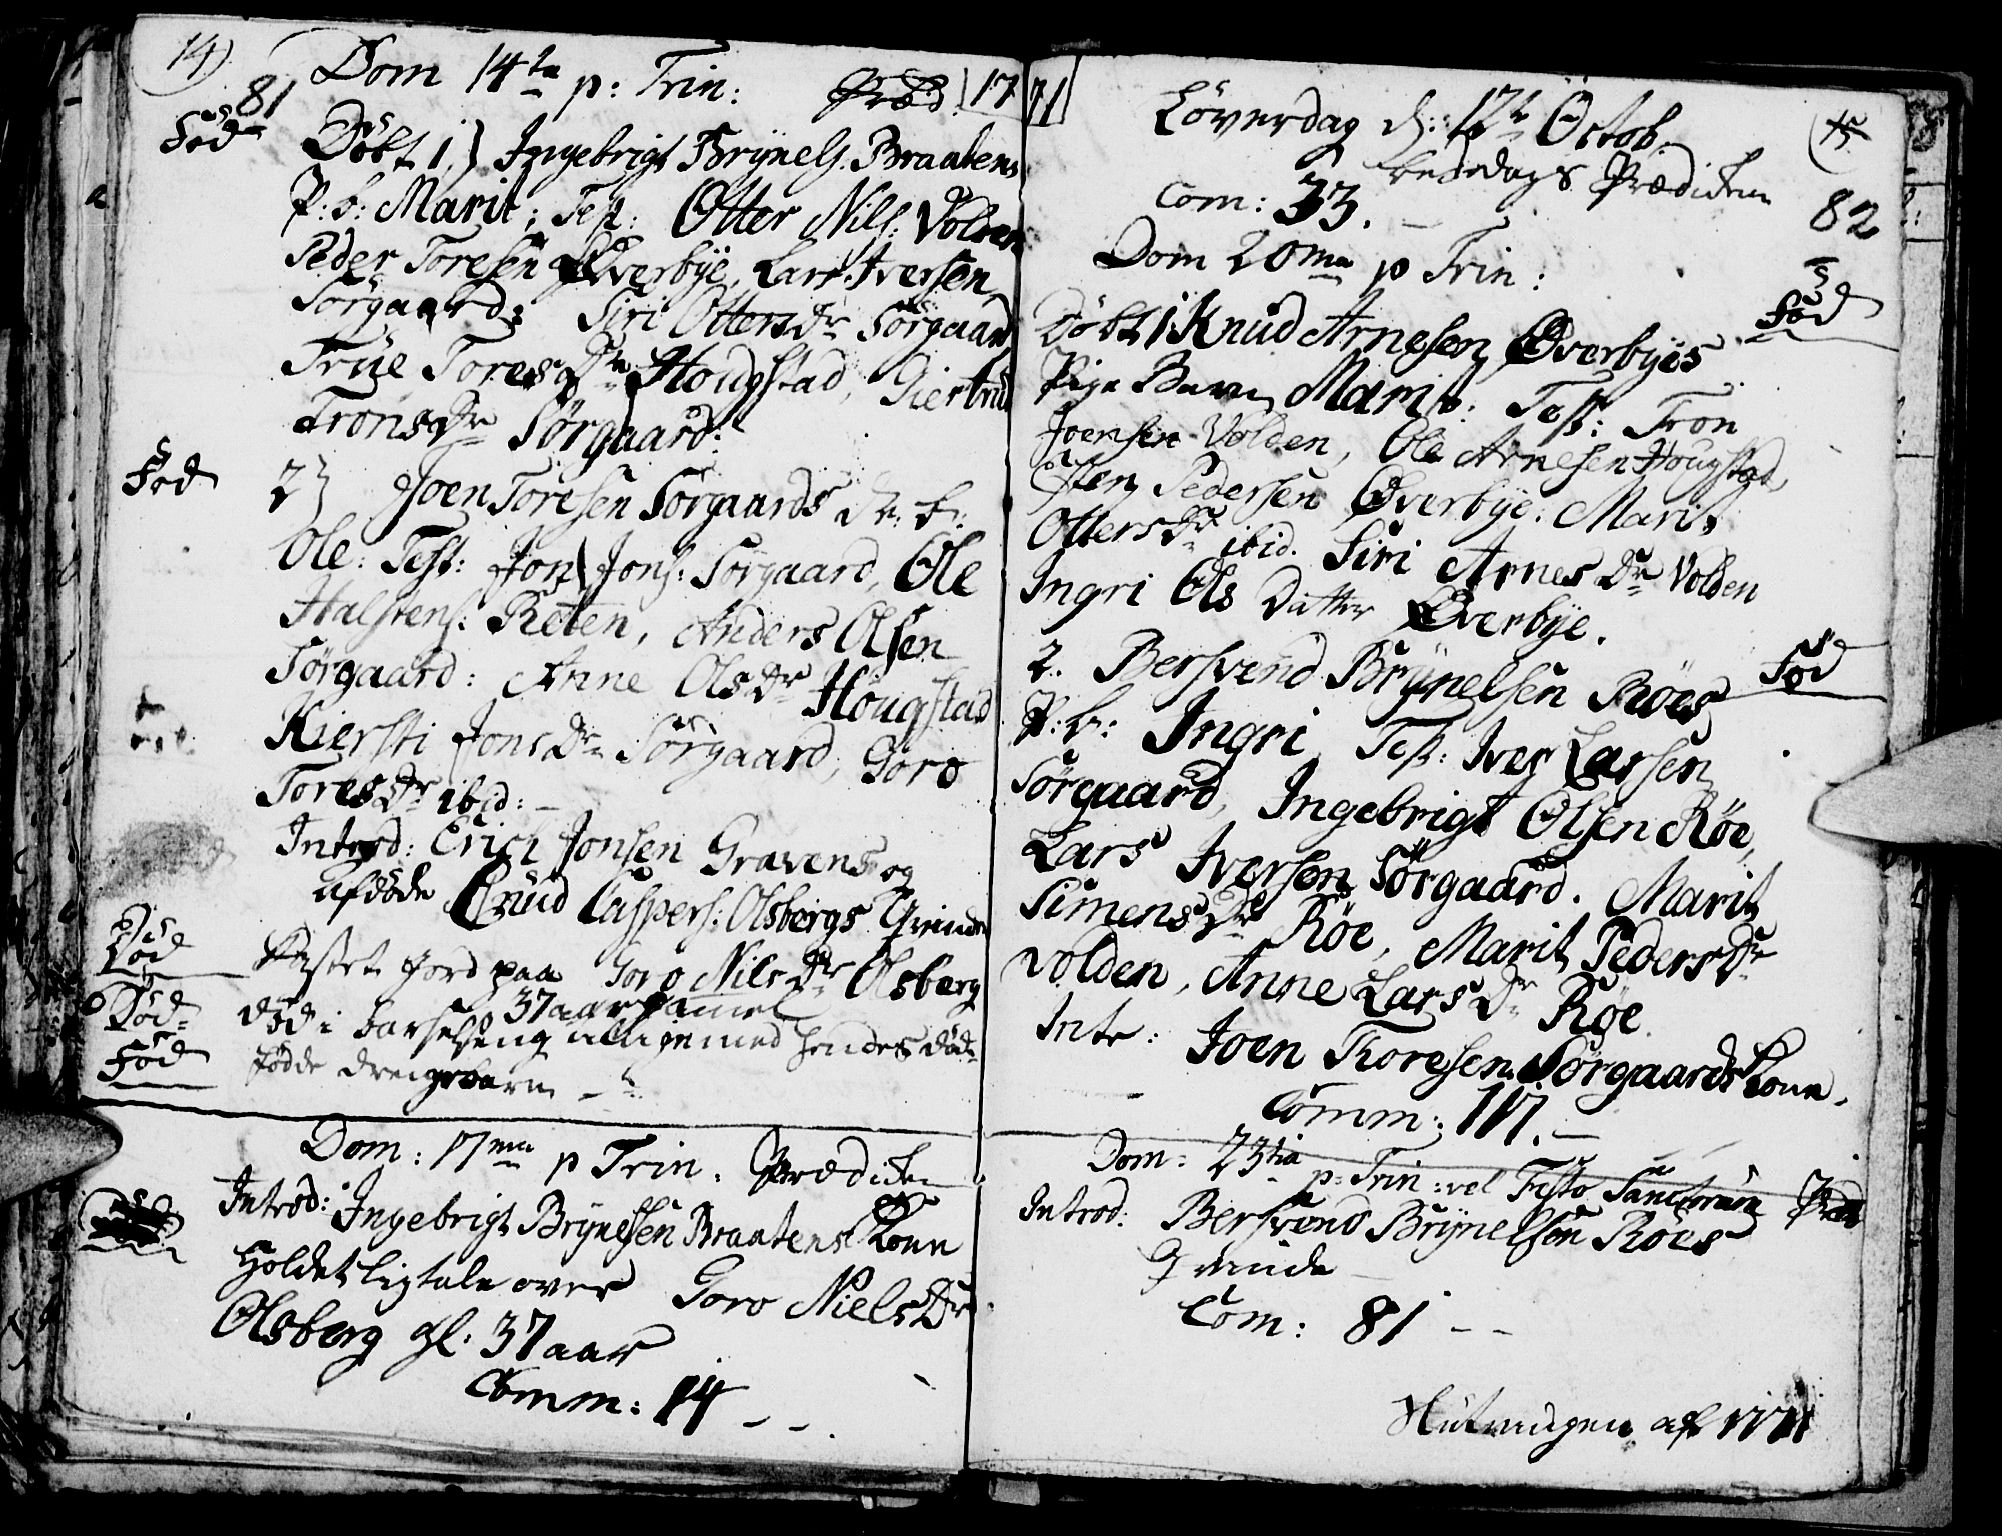 14)
81
Dom 14ta p: Trin: Præd 17
Fød
Döbt 1) Ingebrigt Brÿnels. Braatens
P: b: Marit; Test: Otter Nils: Volden
Peder Toresen Øverbÿe, Lars Iversen
Sörgaard; Siri Ottersdr Sörgaard
Trúe Toresdr Hougstad, Giertrud
Tronsdr Sørgaard:
Fød
2) Joen Toresen Sørgaards dr: b:
Ole: Test: Jon Jons: Sørgaard, Ole
Halstens: Reten, Anders Olsen
Sørgaard: Anne Olsdr Hougstad
Kiersti Jonsdr Sørgaard, Goro
Toresdr ibid:
Introd: Erich Jonsen Gravens og
afdöde Cnúd Caspers: Olsbergs Qvinde
Död
Kastet Jord paa Goro Nilsdr Olsberg
37 aar gamel
Död
död i barselseng tilligemed hendes död-
Fød
födde drengebarn
Dom: 17ma p Trin. Prædiken
Introd: Ingebrigt Brÿnelsen Braatens Kone
Holdet Ligtale over Goro Nielsdr
Olsberg gl. 37 aar
Comm: 14
71
15
82
Löverdag d: 12te Octob.
bededags Prædiken
Com: 33.
Dom 20ma p Trin:
Fød
Döbt 1 Knud Arnesen Øverbÿes
Pige Barn Marit. Test: Tron
Joensen Volden, Ole Arnesen Hougstad,
Esten Pedersen Øverbÿe. Marit
Ottersdr ibid. Siri Arnesdr Volden
Ingri Ols Datter Øverbÿe.
Fød
2. Bersvend Brÿnelsen Röes
P: b: Ingri Test: Iver Larsen
Sörgaard, Ingebrigt Olsen Röe,
Lars Iversen Sörgaard. Marit
Simensdr Röe, Marit Pedersdr
Volden, Anne Larsdr Röe.
Intr: Joen Thoresen Sörgaards Kone.
Comm: 117.
Dom: 23tia p: Trin: vel Festo Sanctorum Præd
Introd: Bersvend Brÿnelsen Röes
Qvinde
Com: 81
Slutningen af 1771